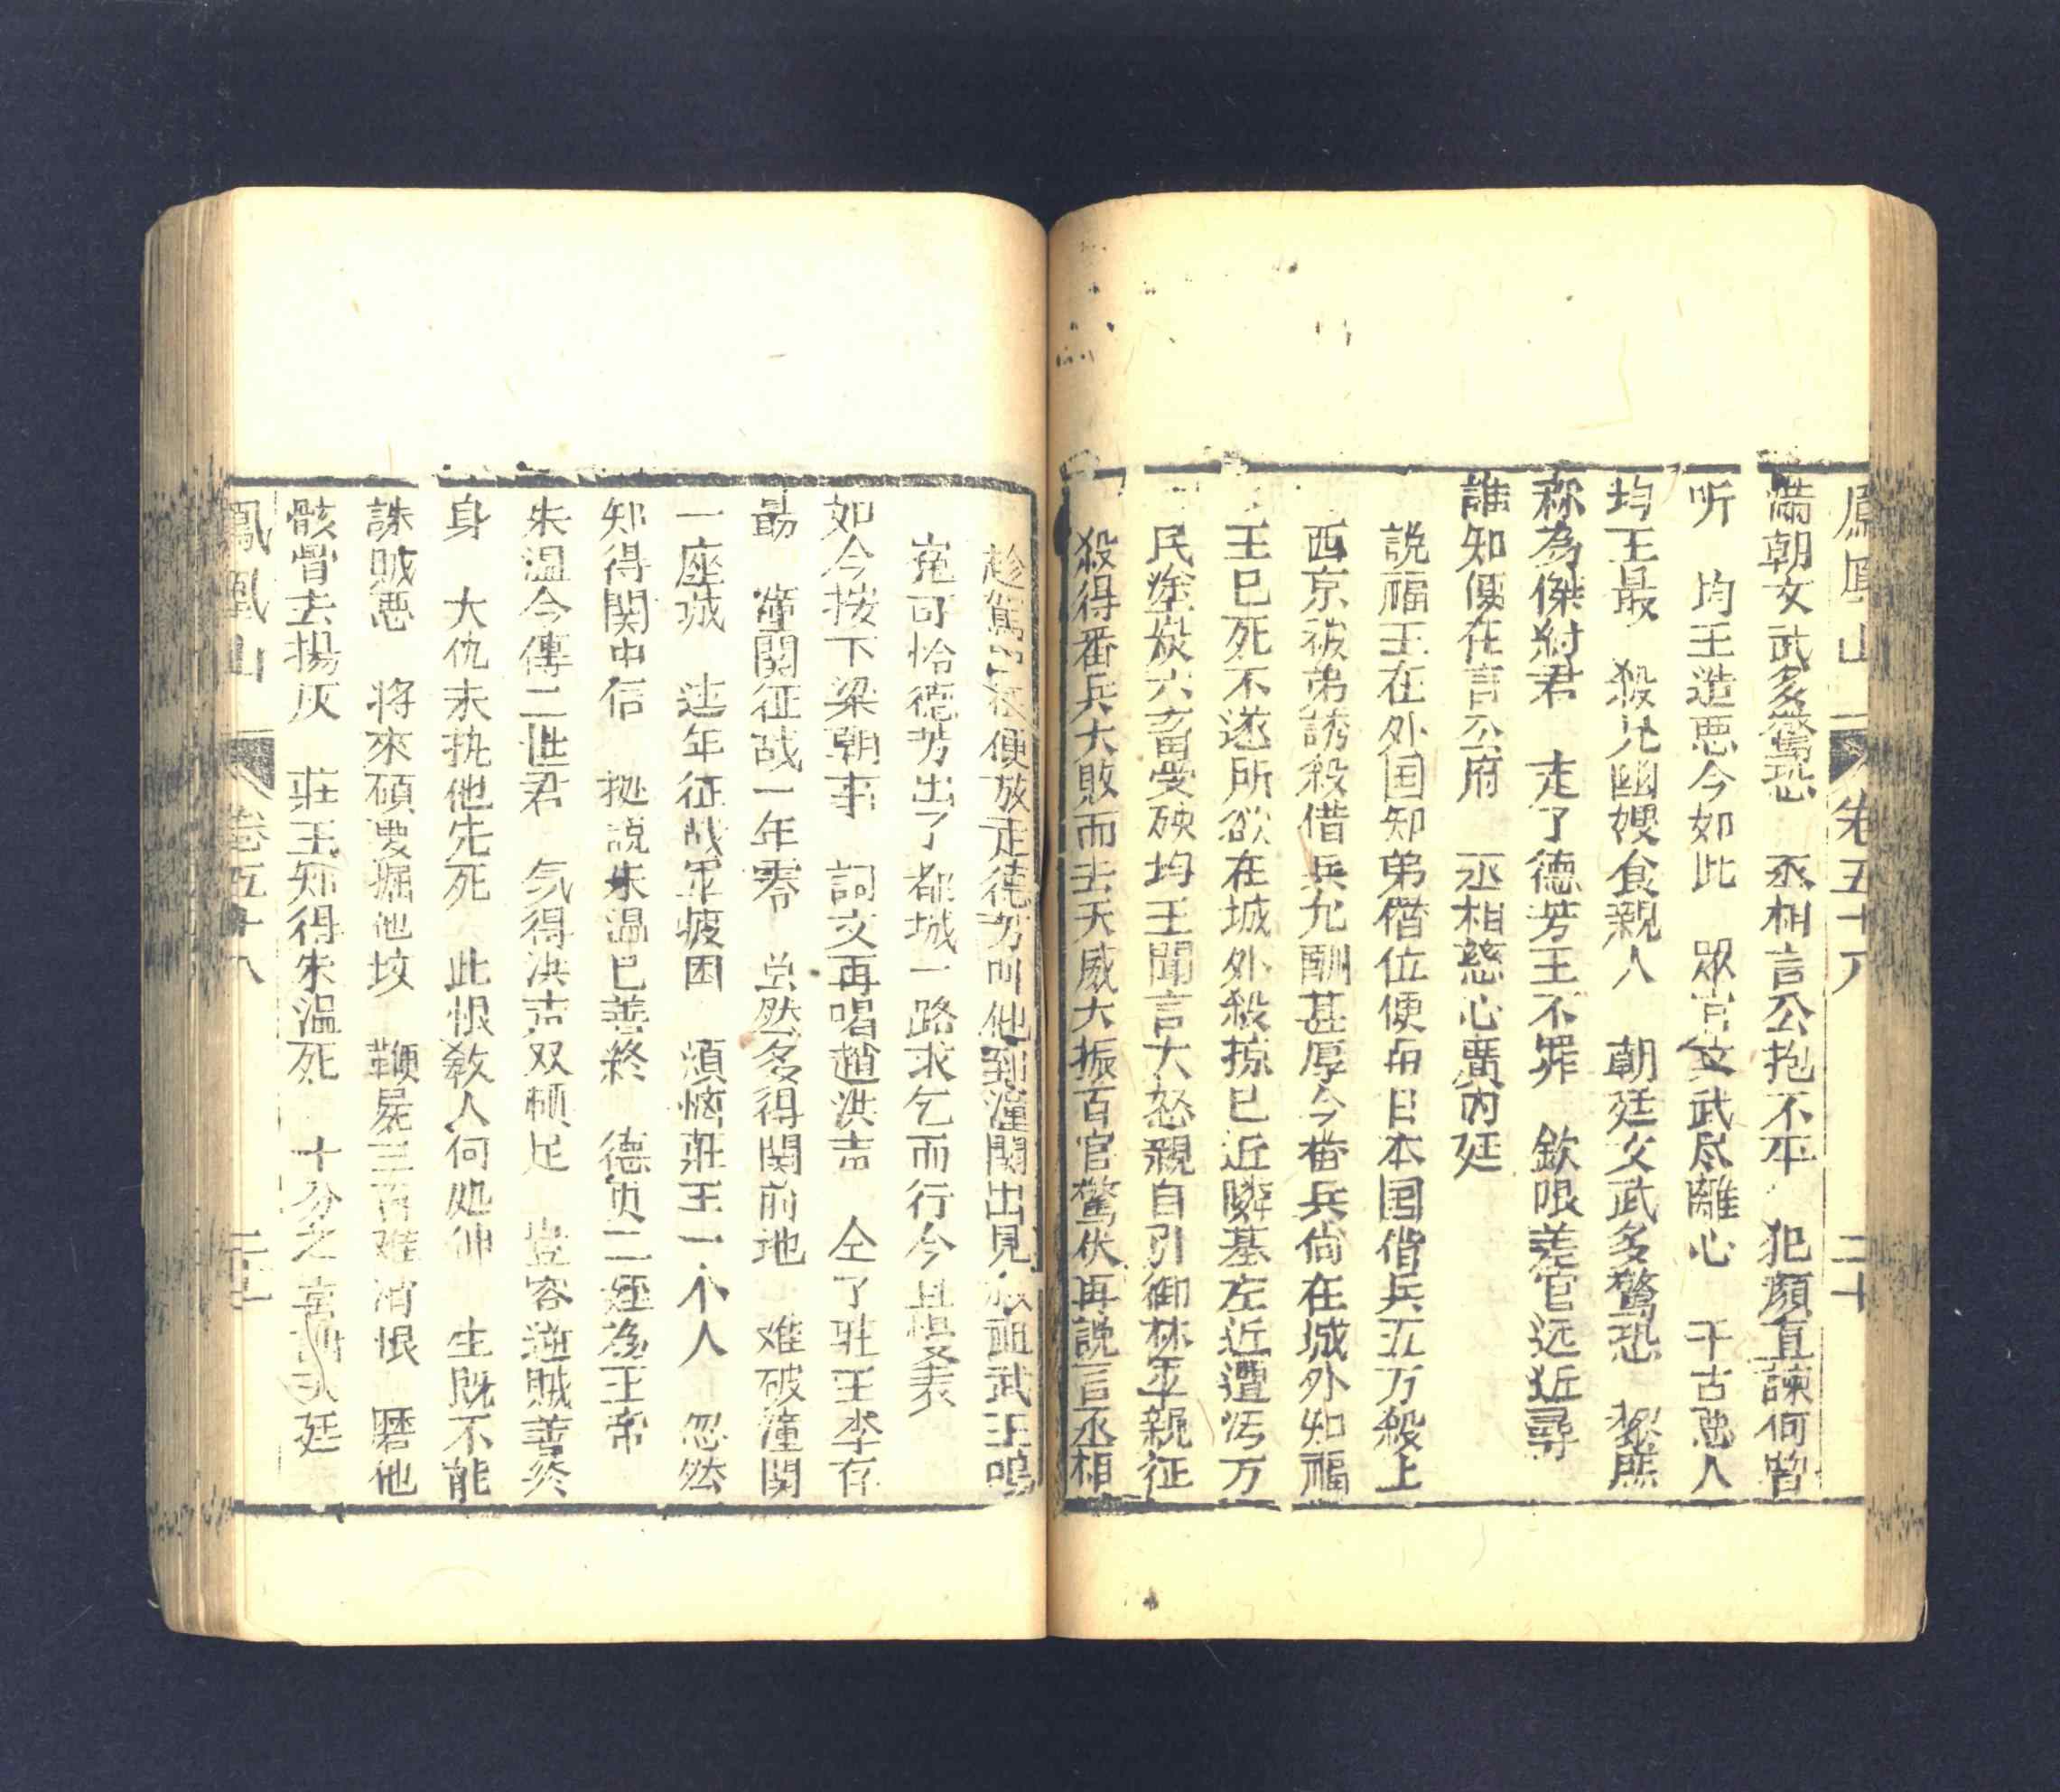 鳳凰山 卷五十八 二十
滿朝文武多驚恐 丞相言公抱不平 犯顏直諫何曾
听 均王造悪今如此 眾官文武尽離心 千古悪人
均王最 殺兄幽嫂食親人 朝廷文武多驚恐 狠熊
称為傑紂君 走了德芳王不罪 欽限差官远近尋
誰知便在言公府 丞相慈心廣內廷
說福王在外国知弟僭位便向日本国借兵五万殺上
西京被弟誘殺借兵允酬甚厚今番兵尙在城外知福
王已死不遂所欲在城外殺掠已近隣基左近遭污万
民塗炭六畜受殃均王聞言大怒親自引御林軍親征
殺得番兵大敗而去天威大振百官驚伏再說言丞相
趁駕出征便放走德芳叫他到潼関出見叔祖武王鳴
冤可恰德芳出了都城一路求乞而行今且慢表
如今按下梁朝事 詞文再唱趙洪声 仝了駐王李存
勗 潼関征战一年零 总然多得関前地 难破潼関
一座城 連年征战軍疲困 煩惱莊王一个人 忽然
知得関中信 抛說朱温已善終 德贞二姪為王帝
朱温今傳二世君 気得洪声双頓足 豈容逆賊善終
身 大仇未执他先死 此恨教人何処伸 生既不能
誅贼悪 将來碩要掘他坟 鞭屍三百难消恨 磨他
骸骨去揚灰 莊王知得朱温死 十分之喜 廷
鳳凰山 卷五十八